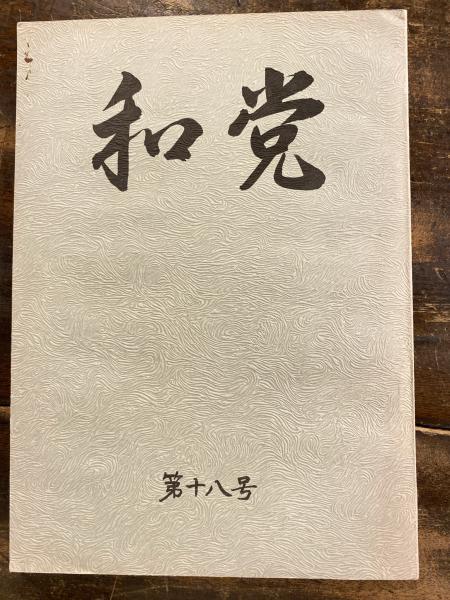 和党
第十八号